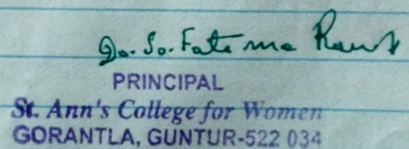 Dr. So. Fatima Rani
PRINCIPAL
St. Ann's College for Women
GORANTLA, GUNTUR-522 034